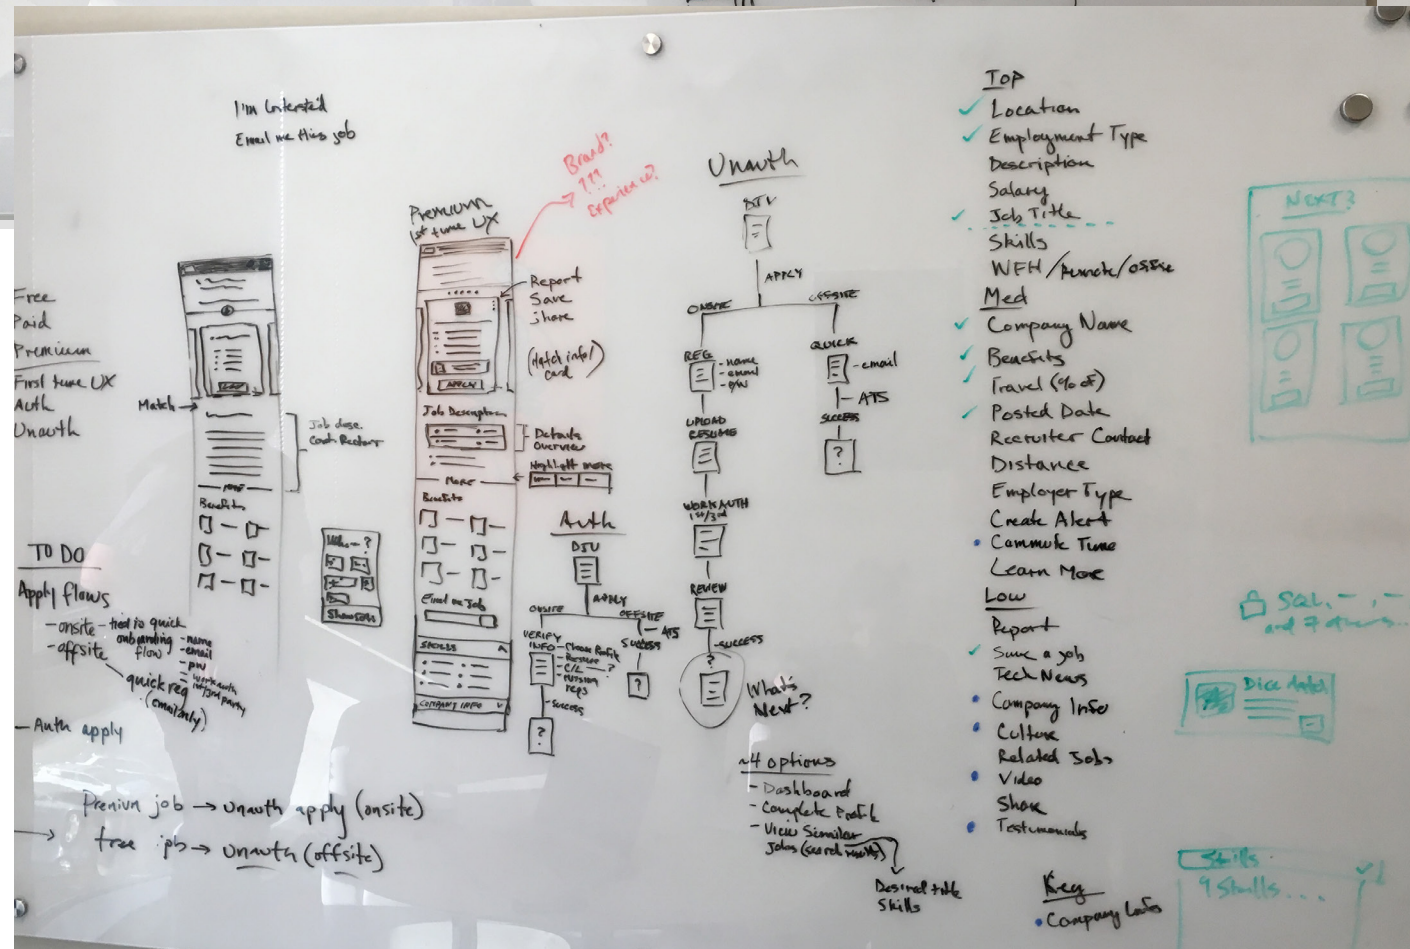 I'm Interested
Email me this job
Free
Paid
Premium
First time UX
Auth
Unauth
TO DO
Apply flows
- onsite - tied to quick
onboarding
flow
- name
- email
- pw
- work auth
- offsite
quick reg
(email only)
- Auth apply
Premium job → Unauth apply (onsite)
free job → Unauth (offsite)
Match
Job desc.
MORE
Benefits
Who - ?
Show Jobs
Premium
1st time UX
Brand?
???
Experience?
Report
Save
share
(Match info!
card)
APPLY
Job Description
Details
Overview
Highlight more
MORE
Benefits
Email me Job
SKILLS
COMPANY INFO
Auth
DJV
APPLY
ONSITE
OFFSITE
- ATS
VERIFY
INFO
- Choose Profile
- Resume
- C/L ?
- missing
reqs
SUCCESS
?
- SUCCESS
?
Unauth
DJV
APPLY
ONSITE
OFFSITE
REG
- name
- email
- pw
UPLOAD
RESUME
WORK AUTH
1st/3rd
REVIEW
- SUCCESS
?
What's
Next?
QUICK
- email
- ATS
SUCCESS
?
~4 options
- Dashboard
- Complete Profile
- View Similar
Jobs (search results)
Desired title
Skills
Top
Location
Employment Type
Description
Salary
Job Title
Skills
WFH/Remote/Office
Med
Company Name
Benefits
Travel (% of)
Posted Date
Recruiter Contact
Distance
Employer Type
Create Alert
Commute Time
Learn More
Low
Report
Save a job
Tech News
Company Info
Culture
Related Jobs
Video
Share
Testimonials
Key
Company Info
NEXT?
SQL, -, -
and 7 others...
Dice Match
Skills
9 Skills....